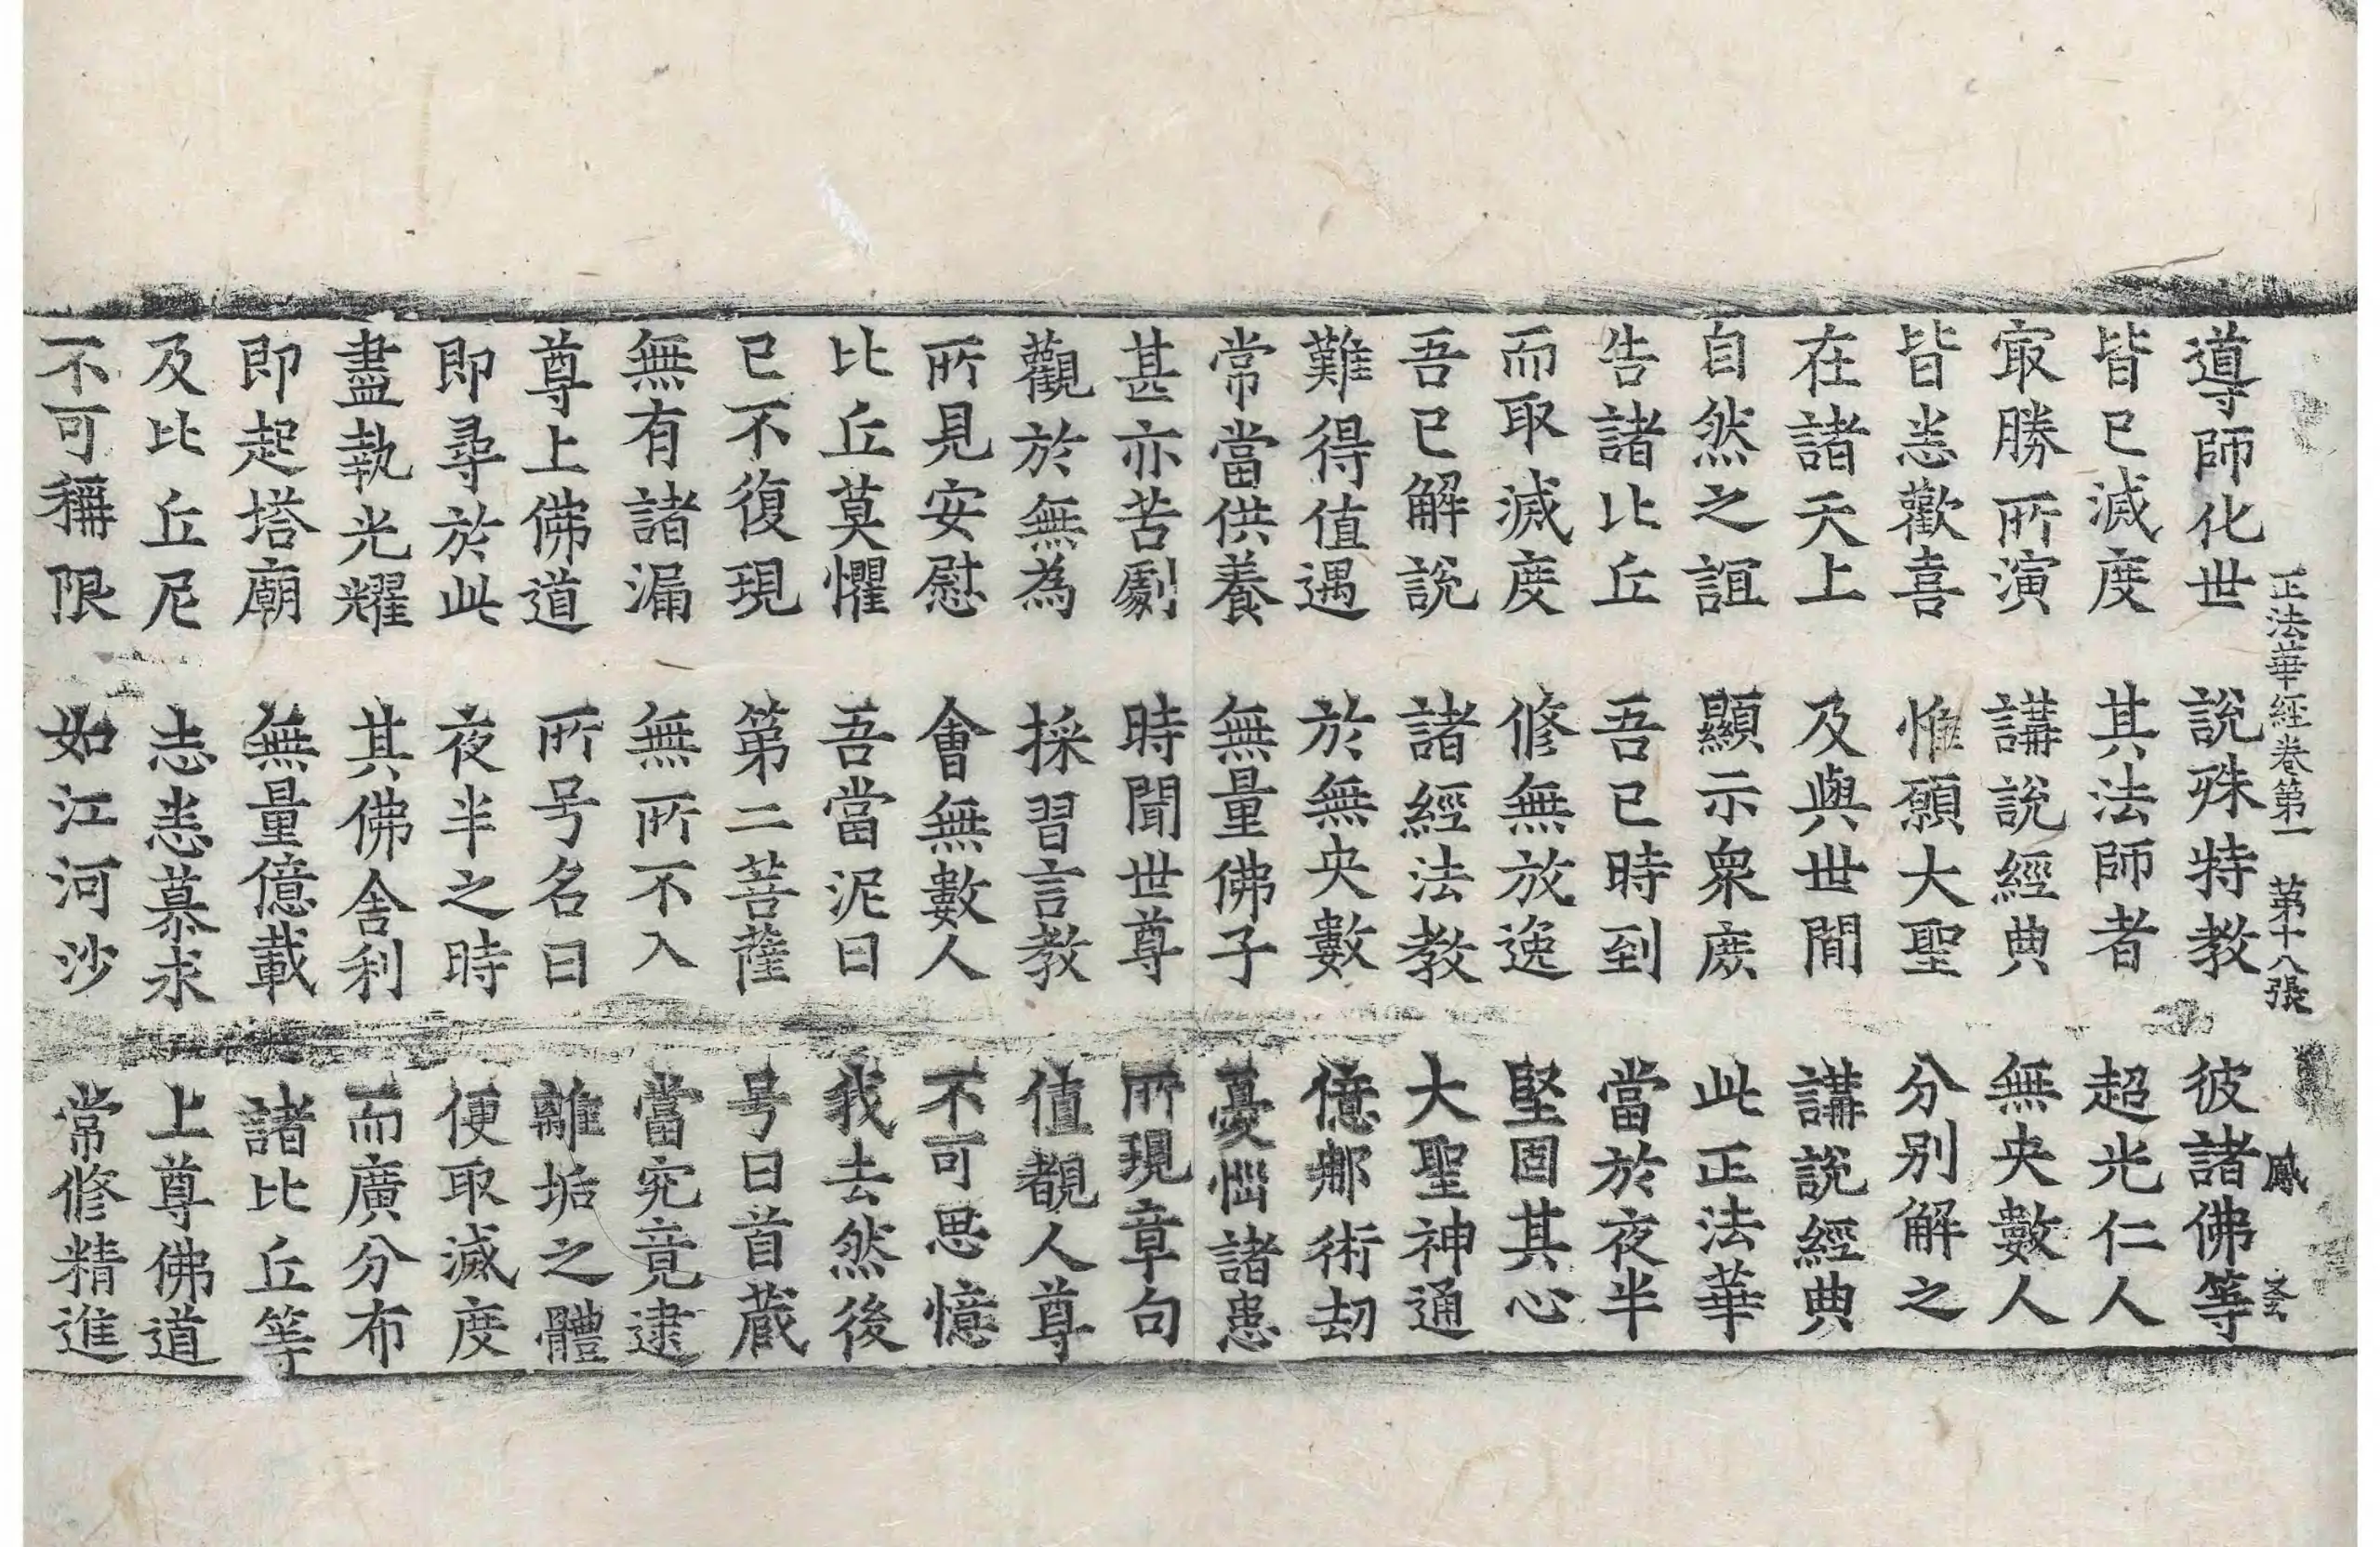 正法華經卷第一　第十八張　鳳
導師化世　說殊特教　彼諸佛等
皆已滅度　其法師者　超光仁人
㝡勝所演　講說經典　無央數人
皆悉歡喜　惟願大聖　分别解之
在諸天上　及與世間　講說經典
自然之誼　顯示衆庻　此正法華
告諸比丘　吾已時到　當於夜半
而取滅度　修無放逸　堅固其心
吾已解說　諸經法教　大聖神通
難得值遇　於無央數　億郍術劫
常當供養　無量佛子　憂惱諸患
甚亦苦劇　時聞世尊　所現章句
觀於無為　採習言教　值覩人尊
所見安慰　會無數人　不可思憶
比丘莫懼　吾當泥曰　我去然後
已不復現　第二菩薩　号曰首蔵
無有諸漏　無所不入　當究竟逮
尊上佛道　所号名曰　離垢之體
即尋於此　夜半之時　便取滅度
盡執光耀　其佛舍利　而廣分布
即起塔廟　無量億載　諸比丘等
及比丘尼　志悉慕求　上尊佛道
不可稱限　如江河沙　常修精進